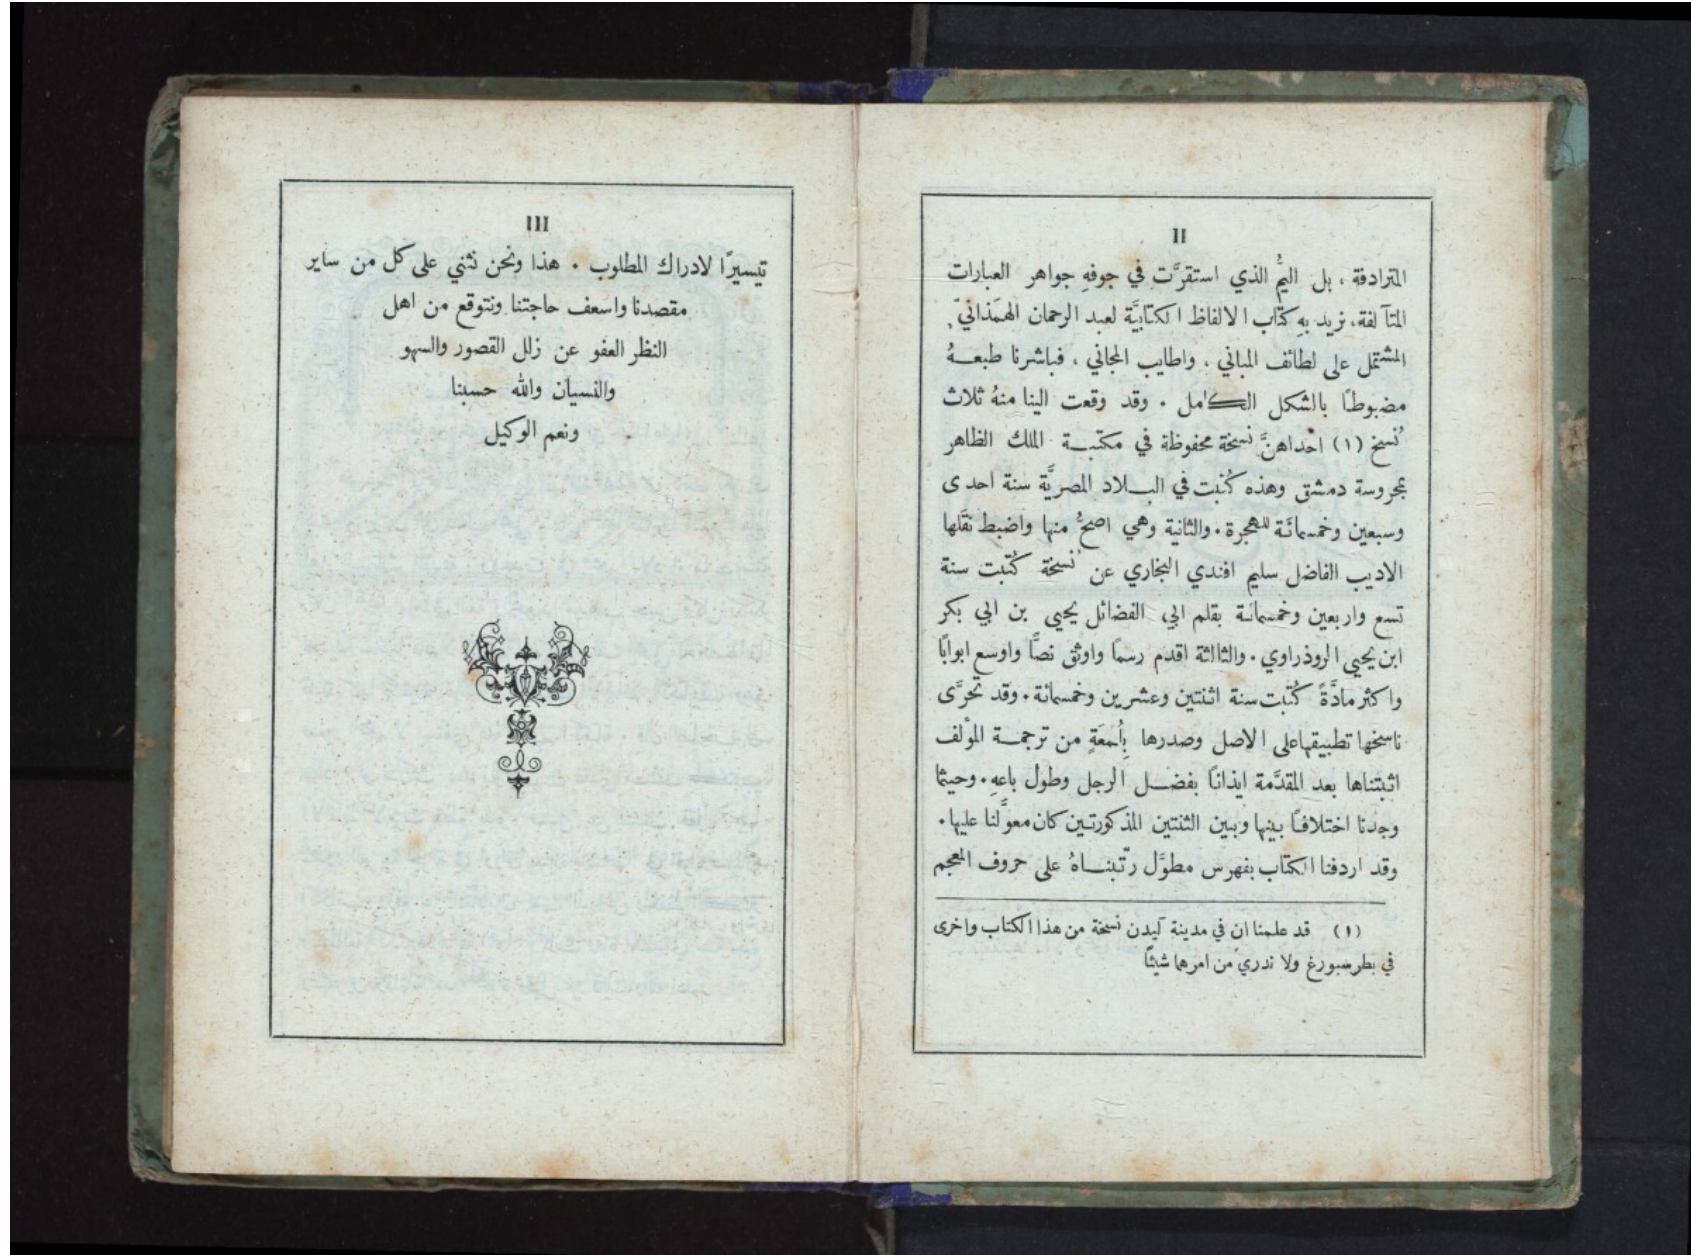 II
المترادفة ، بل اليمُّ الذي استقرَّت في جوفهِ جواهر العبارات
المتآلفة، نريد بهِ كتاب الالفاظ الكتابيَّة لعبد الرحمان الهمَذاني،
المشتمل على لطائف المباني ، واطايب المجاني ، فباشرنا طبعهُ
مضبوطًا بالشكل الكامل . وقد وقعت الينا منهُ ثلاث
نُسخ (١) احداهنَّ نسخة محفوظة في مكتبة الملك الظاهر
بمحروسة دمشق وهذه كُتبت في البلاد المصريَّة سنة احدى
وسبعين وخمسمائة للهجرة . والثانية وهي اصحُّ منها واضبط نقلها
الاديب الفاضل سليم افندي البخاري عن نُسخة كُتبت سنة
تسع واربعين وخمسمائة بقلم ابي الفضائل يحيي بن ابي بكر
ابن يحيي الروذراوي . والثالثة اقدم رسمًا واوثق نصًّا واوسع ابوابًا
واكثر مادَّةً كُتبت سنة اثنتين وعشرين وخمسمائة . وقد تحرَّى
ناسخها تطبيقها على الاصل وصدرها بِلُمعَةٍ من ترجمة المؤلف
اثبتناها بعد المقدَّمة ايذانًا بفضل الرجل وطول باعهِ . وحيثما
وجدنا اختلافًا بينها وبين الثنتين المذكورتين كان معوَّلنا عليها .
وقد اردفنا الكتاب بفهرس مطوَّل رتَّبناهُ على حروف المعجم
(١) قد علمنا ان في مدينة ليدن نسخة من هذا الكتاب واخرى
في بطرسبورغ ولا ندري من امرهما شيئًا
III
تيسيرًا لادراك المطلوب . هذا ونحن نثني على كل من ساير
مقصدنا واسعف حاجتنا ونتوقع من اهل
النظر العفو عن زلل القصور والسهو
والنسيان والله حسبنا
ونعم الوكيل